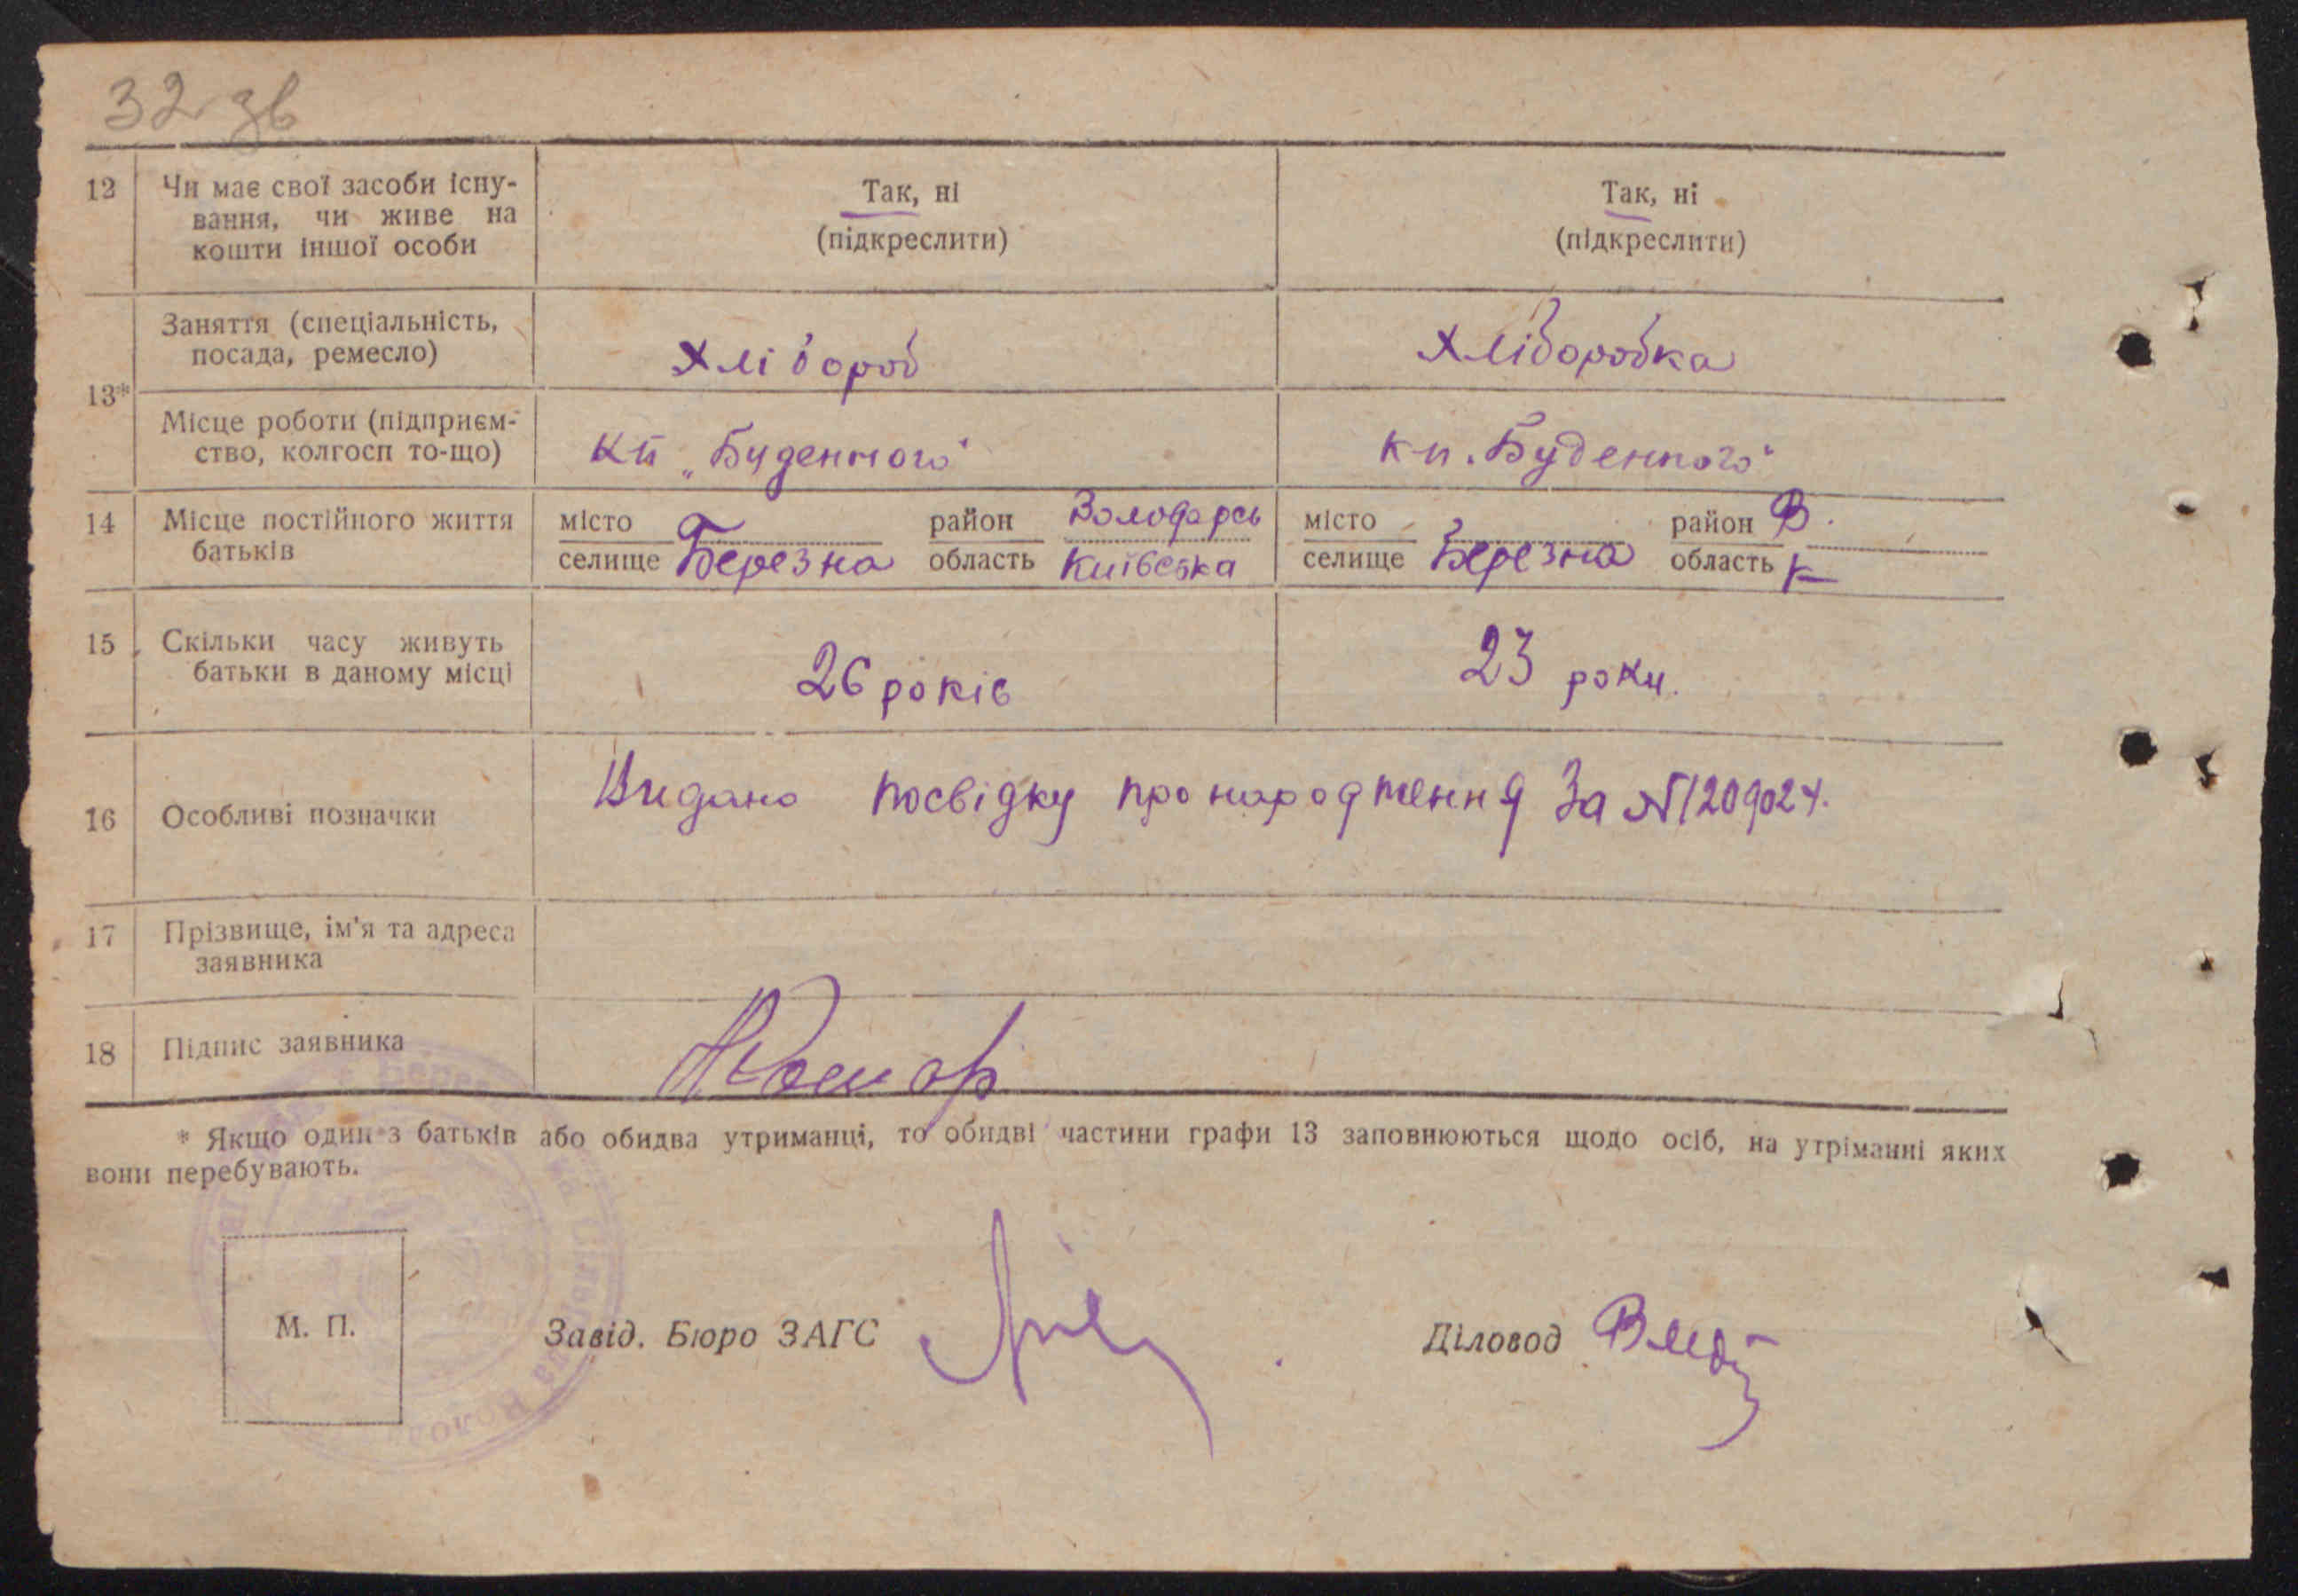 32 зв
12 Чи має свої засоби існу-
вання, чи живе на
кошти іншої особи
Так, ні
(підкреслити)
Так, ні
(підкреслити)
13*
Заняття (спеціальність,
посада, ремесло)
Хлібороб
Хліборобка
Місце роботи (підприєм-
ство, колгосп то-що)
Кп „Буденного"
кп. Буденного"
14 Місце постійного життя
батьків
місто
селище Березна
район Володарсь
область Київська
місто
селище Березна
район В.
область К
15 Скільки часу живуть
батьки в даному місці
26 років
23 роки.
16 Особливі позначки
Видано посвідку про народження За №1209024.
17 Прізвище, ім'я та адреса
заявника
18 Підпис заявника
* Якщо один з батьків або обидва утриманці, то обидві частини графи 13 заповнюються щодо осіб, на утріманні яких
вони перебувають.
М. П.
Завід. Бюро ЗАГС
Діловод